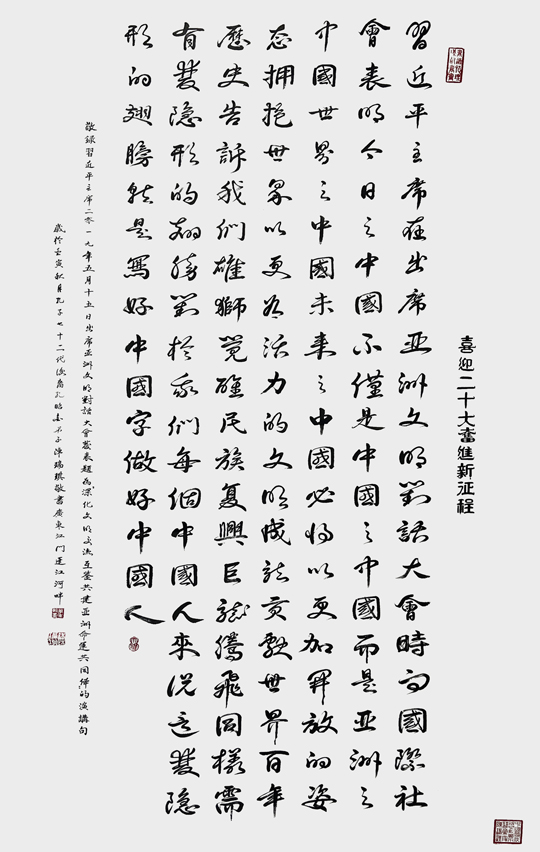 喜迎二十大奮進新征程
習近平主席在出席亚洲文明對話大會時向國際社
會表明今日之中國不僅是中國之中國而是亚洲之
中國世界之中國未来之中國必将以更加開放的姿
态拥抱世界以更有活力的文明成就贡獻世界百年
歷史告訴我们雄獅覺醒民族复興巨龍騰飛同樣需
有雙隐形的翅膀對於我们每個中國人來说这雙隐
形的翅膀就是寫好中國字做好中國人
敬録習近平主席二零一九年五月十五日出席亚洲文明對話大會發表題為深化文明交流互鉴共建亚洲命運共同體的演講句
歲於壬寅秋月孔子七十二代後裔孔昭弟子陳瑞琪敬書廣東江門蓬江河畔